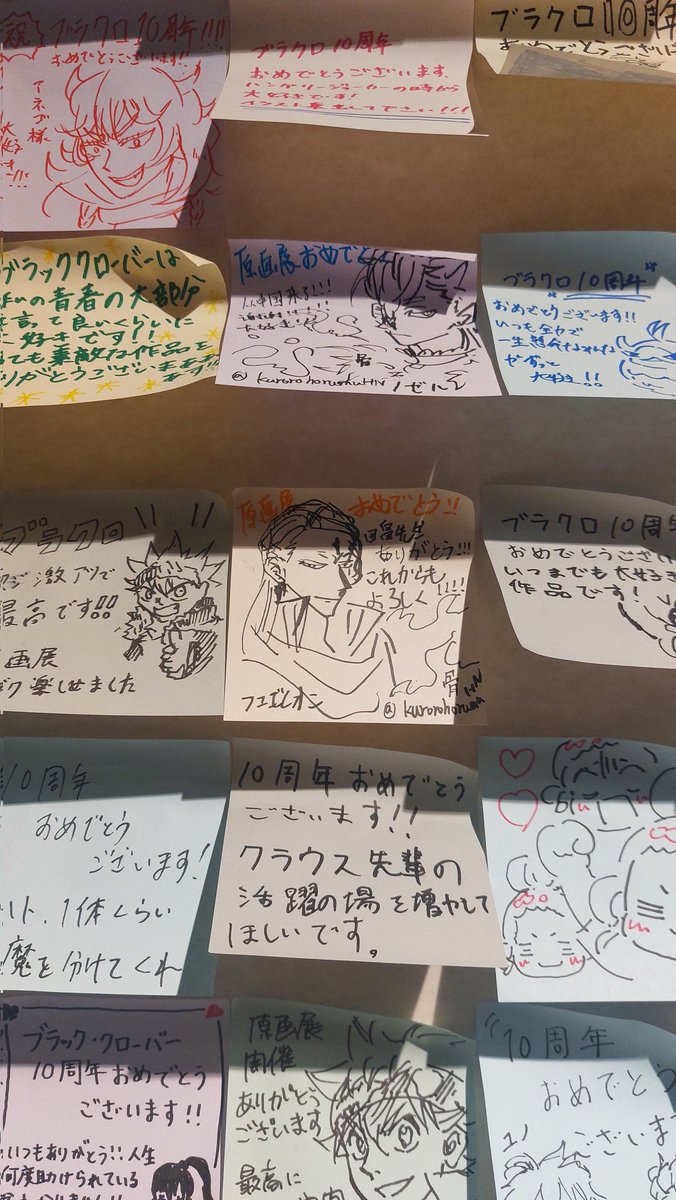 祝 ブラクロ10周年!!!!
おめでとうございます!!
アネゴ様
大好き
です!!!
ブラクロ10周年
おめでとうございます。
ハングリージョーカーの時から
大好きです!
ブラクロ10周年
おめでとうござい
ブラッククローバーは
青春の大部分
言って良いくらいに
好きです!!
ても素敵な作品を
りがとうございます
原画展おめでと
中国
大好き!
骨
@kurorohorushuHN
ノゼル
ブラクロ10周年
おめでとうございます!!
いつも全力で
一生懸命な
大好き!!
ブラクロ
激アツで
最高です!!
画展
楽しめました
原画展 おめでとう!!
田畠先生
ありがとう!!!
これからも
よろしく!!!!
フエゴレオン
骨
HN
@kurorohoruma
ブラクロ10周年
おめでとうござい
いつまでも大好き
作品です!
10周年
おめでとう
ございます!
ト、1体くらい
魔を分けてくれ
10周年おめでとう
ございます!!
クラウス先輩の
活躍の場を増やして
ほしいです。
ブラック・クローバー
10周年おめでとう
ございます!!
いつもありがとう!!人生
何度助けられている
原画展
開催
ありがとう
ございます
最高に
10周年
おめでとう
ございます